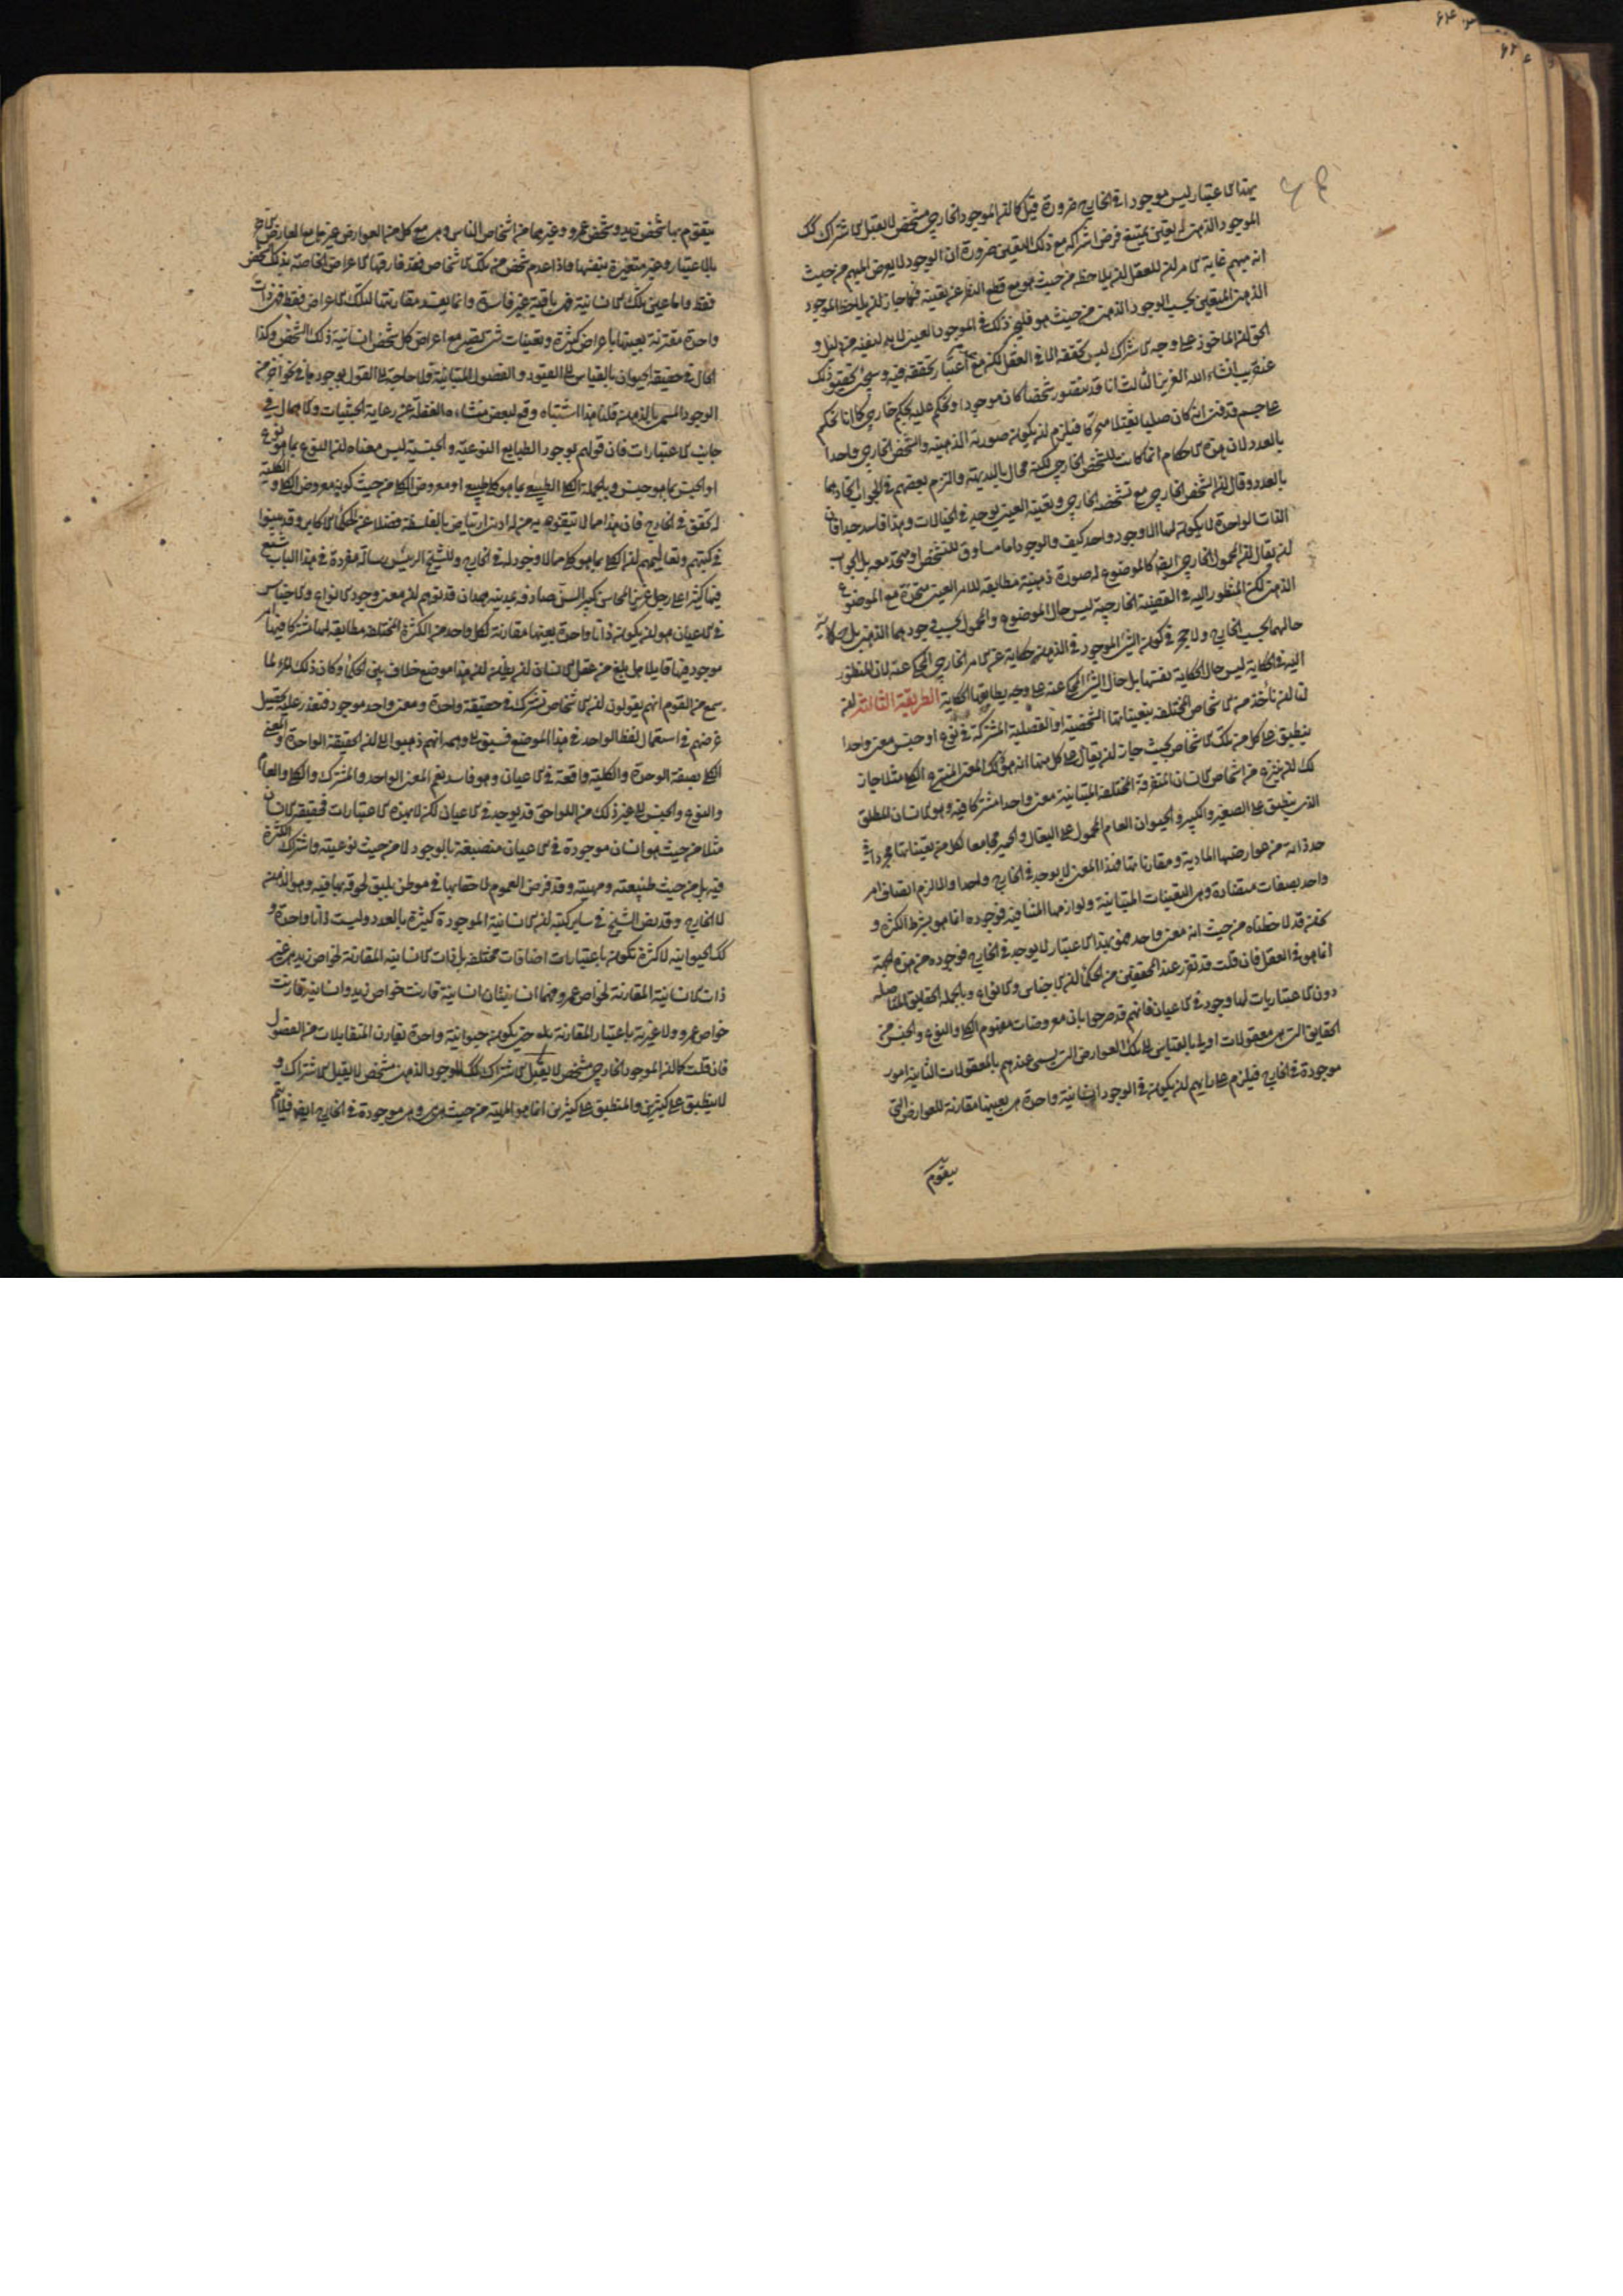 بهذا الاعتبار ليس موجودا في الخارج ضرورة قيل كما ان الموجود الخارجي متشخص لا يقبل الاشتراك كك
الموجود الذهني له تعين يمتنع فرض اشتراكه مع ذلك التعين ضرورة ان الوجود لا يعرض المبهم من حيث
انه مبهم غاية الامر ان للعقل ان يلاحظه من حيث هو مع قطع النظر عن تعينه فكما جاز ان يلاحظ الموجود
الذهني المتعين بحسب الوجود الذهني من حيث هو فليجز ذلك في الموجود العيني لا بد لنفيه من دليل و
الحق ان الماخوذ على وجه الاشتراك ليس تحققه الا في العقل لكن مع اعتبار تحققه فيه وسيجئ تحقيق ذلك
عن قريب انشاء الله العزيز الثالث انا قد نتصور شخصا كان موجودا ونحكم عليه بحكم خارجي كما انا نحكم
على جسم قد فنى انه كان صلبا ثقيلا متحركا فيلزم ان يكون صورته الذهنية والشخص الخارجي واحدا
بالعدد لان هذه الاحكام انما كانت للشخص الخارجي لكنه محال بالبديهة والتزم بعضهم في الجواب اتحادهما
بالعدد وقال ان الشخص الخارجي مع تشخصه الخارجي وتعينه العيني يوجد في الخيالات وهذا فاسد جدا فان
الذات الواحدة لا يكون لها الا وجود واحد كيف والوجود اما مساوق للتشخص او متحد معه بل الجواب
ان يقال ان المحمول الخارجي ايضا كالموضوع له صورة ذهنية مطابقة للامر العيني متحدة مع الموضوع
الذهني لكن المنظور اليه في القضية الخارجية ليس حال الموضوع والمحمول بحسب وجودهما الذهني بل حكاية
حالهما بحسب الخارج ولا حجر في كون الشئ الموجود في الذهن حكاية عن الامر الخارجي المحكى عنه لان المنظور
اليه في الحكاية ليس حال الحكاية نفسها بل حال الشئ المحكى عنه على وجه يطابقها الحكاية الطريقة الثالثة ان
لنا ان ناخذ من الاشخاص المختلفة بتعيناتها الشخصية او الفصلية المشتركة في نوع او جنس معنى واحدا
ينطبق على كل من تلك الاشخاص بحيث جاز ان يقال على كل منها انه هو ذلك المعنى المنتزع الكلى مثلا جاز
لك ان تنتزع من اشخاص الانسان المتفرقة المختلفة المتباينة معنى واحدا مشتركا فيه وهو الانسان المطلق
الذي ينطبق على الصغير والكبير والحيوان العام المحمول على البغال والحمير مجامعا لكل من تعيناتها مجردا في
حد ذاته من عوارضها المادية ومقارناتها فهذا المعنى لا يوجد في الخارج واحدا والا لزم اتصاف امر
واحد بصفات متضادة وهي التعينات المتباينة ولوازمها المتنافية فوجوده انما هو بشرط الكثرة و
نحن قد لاحظناه من حيث انه معنى واحد فهو بهذا الاعتبار لا يوجد في الخارج فوجوده من هذه الجهة
انما هو في العقل فان قلت قد تقرر عند المحققين من الحكماء ان الاجناس والانواع وبالجملة الحقايق المتاصلة
دون الاعتباريات لها وجود في الاعيان فانهم قد صرحوا بان معروضات مفهوم الكلى والنوع والجنس من
الحقايق التي هي معقولات اولى بالقياس الى تلك العوارض التي يسمى عندهم بالمعقولات الثانية امور
موجودة في الخارج فيلزم على رايهم ان يكون في الوجود انسانية واحدة هي بعينها مقارنة للعوارض التي
يتقوم
يتقوم بها شخص زيد وشخص عمرو وغيرهما من اشخاص الناس وهي مع كل من العوارض غير ما مع العارض الاخر
بالاعتبار وغير متغيرة بنفسها فاذا عدم شخص من تلك الاشخاص فقد فارقها الاعراض الخاصة بذلك الشخص
فقط واما عين تلك الانسانية فهي باقية غير فاسدة وانما يفسد مقارنتها لتلك الاعراض فقط فهي ذات
واحدة مقترنة بعينها باعراض كثيرة وتعينات شتى يصير مع اعراض كل شخص انسانية ذلك الشخص وكذا
الحال في حقيقة الحيوان بالقياس الى القيود والفصول المتباينة ولا حاجة الى القول بوجودها في نحو اخر من
الوجود المسمى بالذهن قلنا هذا اشتباه وقع لبعض منشاؤه الغفلة عن رعاية الحيثيات والاهمال في
جانب الاعتبارات فان قولهم بوجود الطبايع النوعية والجنسية ليس معناه ان النوع بما هو نوع
او الجنس بما هو جنس وبالجملة الكلى الطبيعى بما هو كلى طبيعى او معروض الكلى من حيث كونه معروض الكلى والكلية
له تحقق في الخارج فان هذا مما لا يتفوه به من له ادنى ارتياض بالفلسفة فضلا عن الحكماء الاكابر وقد بينوا
في كتبهم وتعاليمهم ان الكلى بما هو كلى مما لا وجود له في الخارج وللشيخ الرئيس رسالة مفردة في هذا الباب شنع
فيها كثيرا على رجل غزير المحاسن كبير السن صادفه بمدينة همدان قد توهم ان معنى وجود الانواع والاجناس
في الاعيان هو ان يكون ذاتا واحدة بعينها مقارنة لكل واحد من الكثرة المختلفة مطابقة لها مشتركا فيها امر
موجود فيها قايلا هل بلغ من عقل الانسان ان يظن ان هذا موضع خلاف بين الحكماء وكان ذلك المرء لما
سمع من القوم انهم يقولون ان الاشخاص تشترك في حقيقة واحدة ومعنى واحد موجود فتعذر عليه تحصيل
غرضهم في استعمال لفظ الواحد في هذا الموضع فسبق الى وهمه انهم ذهبوا الى ان الحقيقة الواحدة والمعنى
الكلى بصفة الوحدة والكلية واقعة في الاعيان وهو فاسد نعم المعنى الواحد والمشترك والكلى والعام
والنوع والجنس الى غير ذلك من اللواحق قد يوجد في الاعيان لكن لا بهذه الاعتبارات فحقيقة الانسان
مثلا من حيث هو انسان موجودة في الاعيان منصبغة بالوجود لا من حيث نوعيته واشتراك الكثرة
فيه بل من حيث طبيعته ومهيته وقد فرض العموم لاحقا بها في موطن يليق لحوقه بها فيه وهو الذهن
لا الخارج وقد نص الشيخ في ساير كتبه ان الانسانية الموجودة كثيرة بالعدد وليست ذاتا واحدة و
كك الحيوانية لا كثرة تكون باعتبارات اضافات مختلفة بل ذات الانسانية المقارنة لخواص زيد هي غير
ذات الانسانية المقارنة لخواص عمرو فهما انسانيتان انسانية قارنت خواص زيد وانسانية قارنت
خواص عمرو ولا غيرية باعتبار المقارنة بل حتى يكون حيوانية واحدة تقارن المتقابلات من الفصول
فان قلت كما ان الموجود الخارجي متشخص لا يقبل الاشتراك كك الموجود الذهني متشخص لا يقبل الاشتراك و
لا ينطبق على كثيرين والمنطبق على كثيرين انما هو المهية من حيث هي وهي موجودة في الخارج ايضا فلا يتم